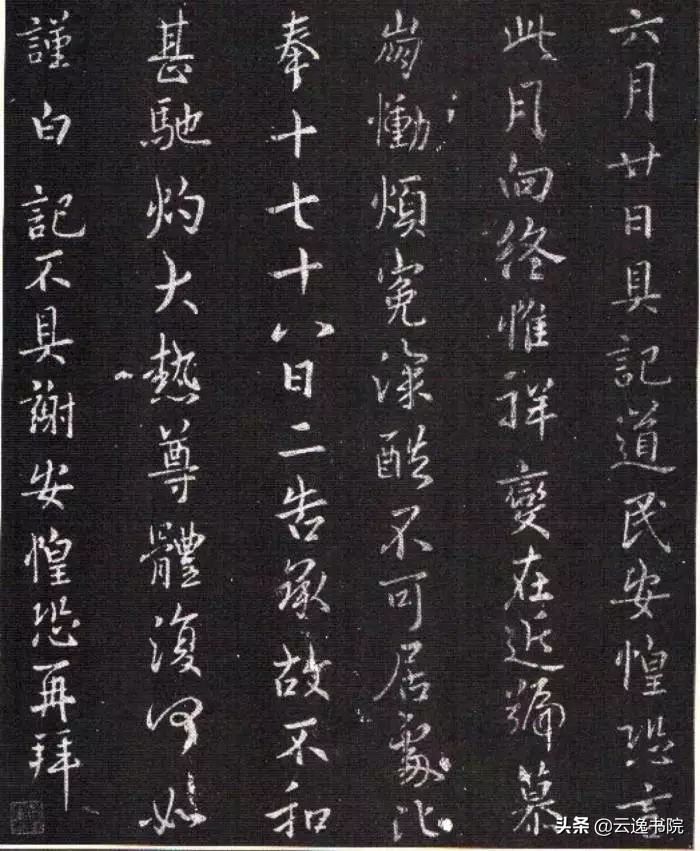 六月廿日具記道民安惶恐言
此月向終惟祥變在近號慕
崩慟煩冤深酷不可居處比
奉十七十八日二告承故不和
甚馳灼大熱尊體復何如
謹白記不具謝安惶恐再拜
头条 @云逸书院